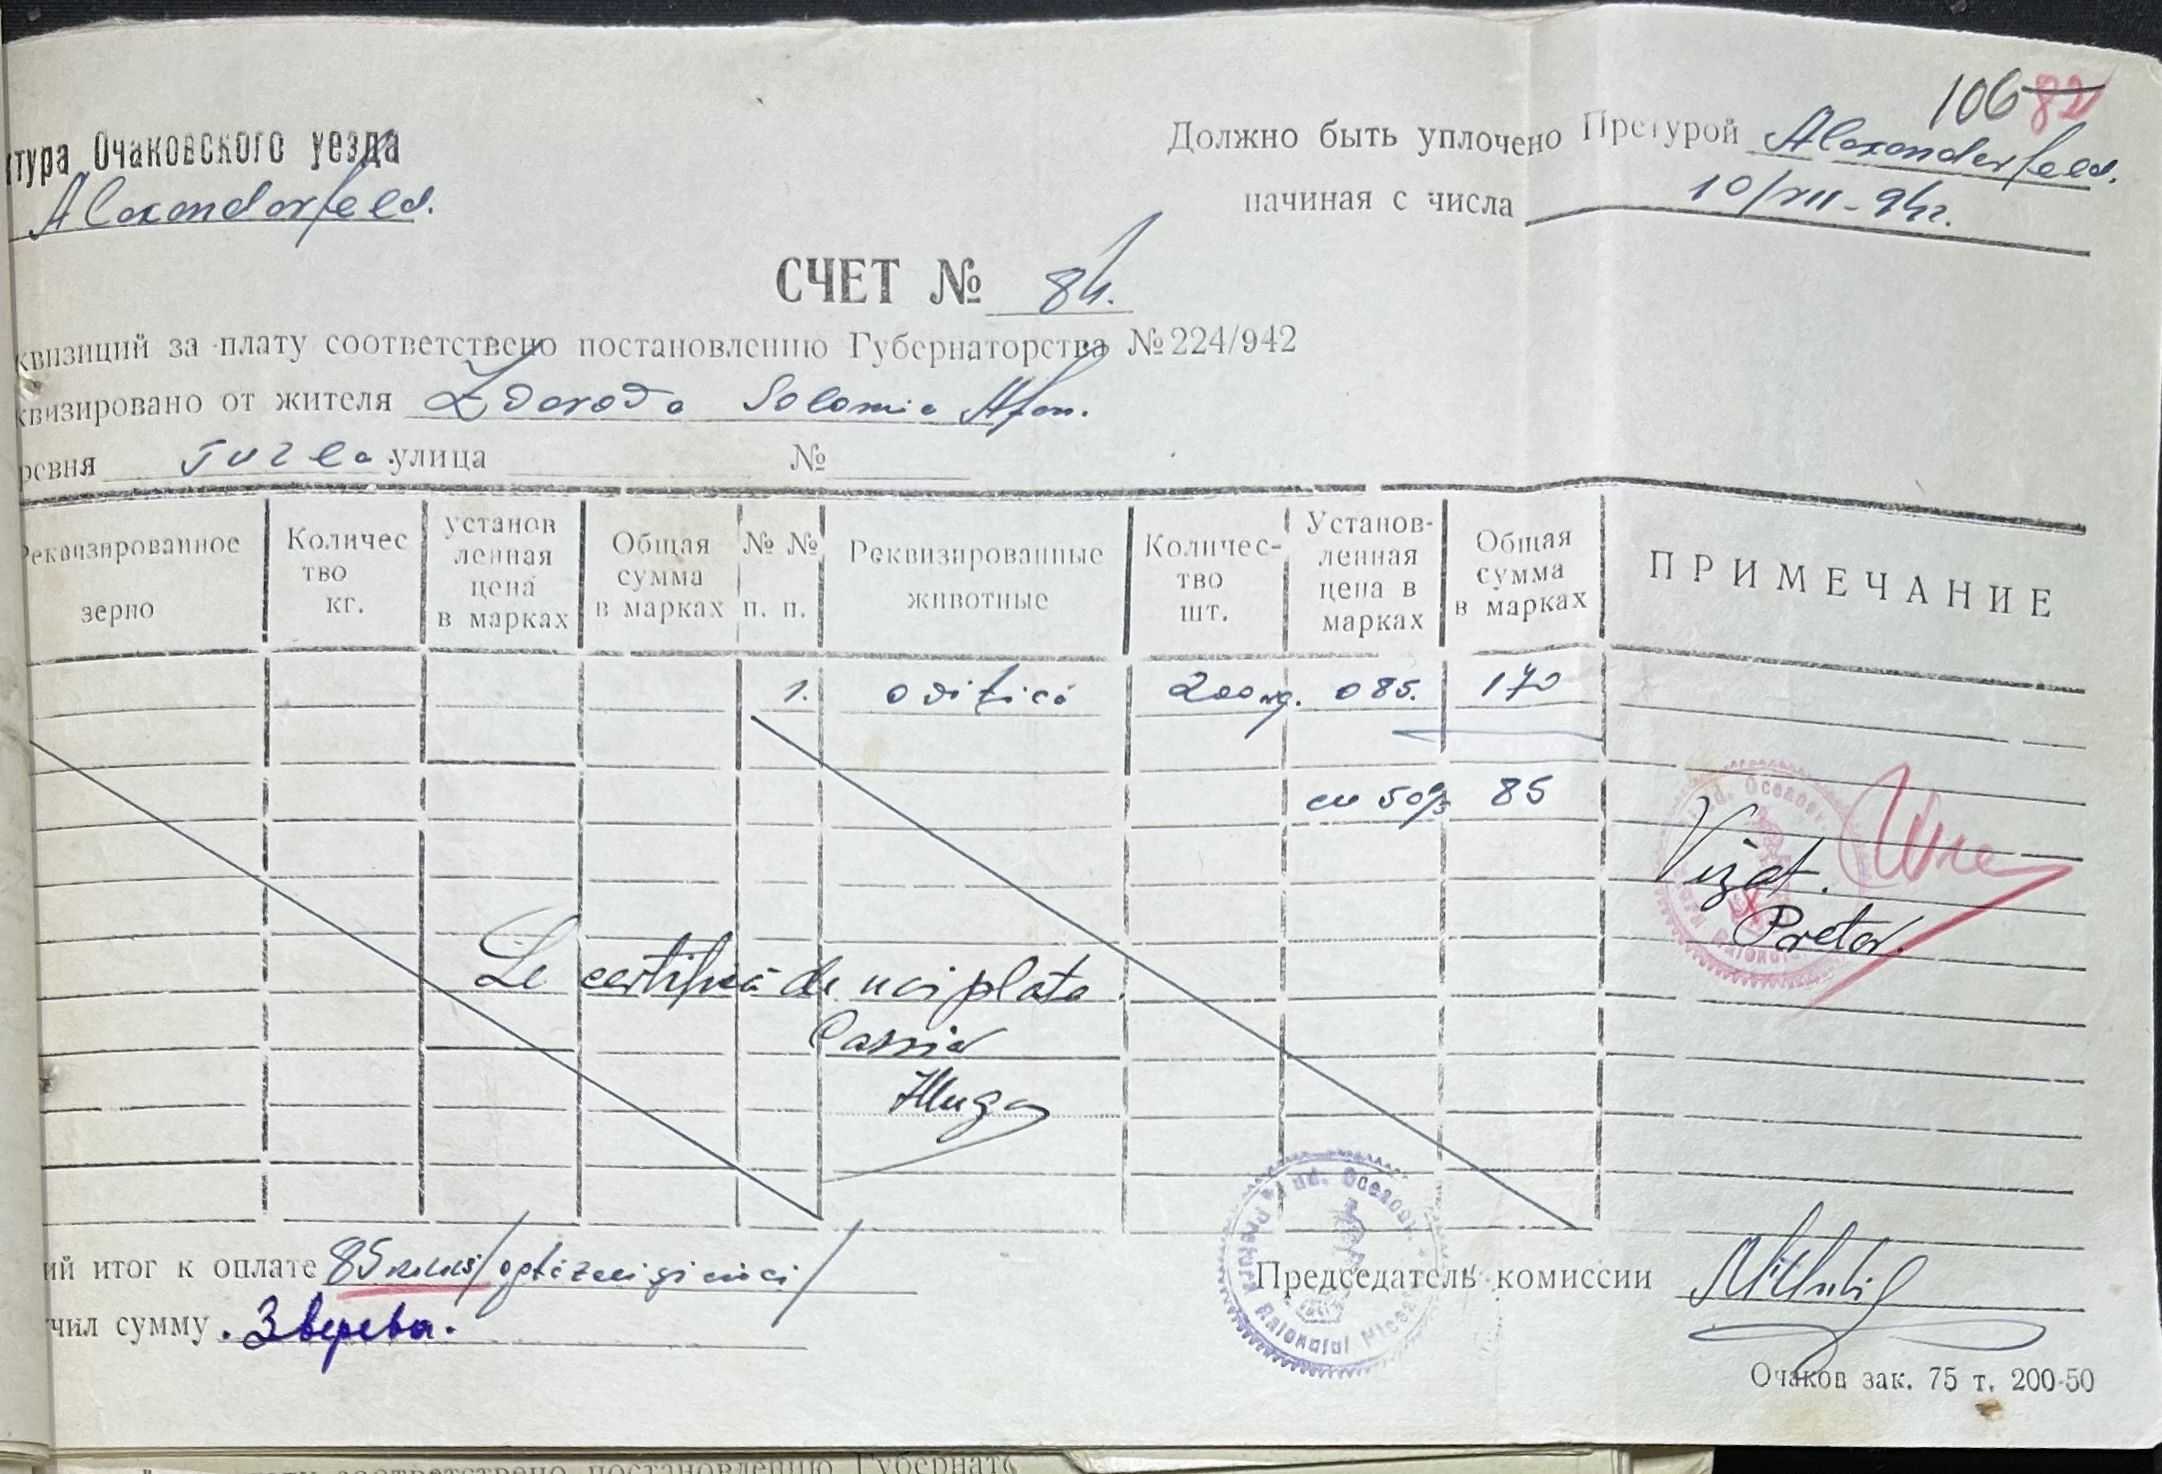 106 82
ктура Очаковского уезда
Alexanderfeld.
Должно быть уплочено Претурой Alexanderfeld.
начиная с числа 10/XII-942.
СЧЕТ № 84.
квизиций за плату соответствено постановлению Губернаторства №224/942
квизировано от жителя Zdoroda Solomia Afon.
ревня улица №
Реквизированное зерно
Количес тво кг.
установ ленная цена в марках
Общая сумма в марках
№ № п. п.
Реквизированные животные
Количес- тво шт.
Установ- ленная цена в марках
Общая сумма в марках
ПРИМЕЧАНИЕ
1. 200 kg. 085. 170
cu 50% 85
Vizat.
Pretor.
Se certifică de noi plata.
Cassier
ий итог к оплате 85 /optzeci și cinci/
чил сумму . Зверева.
Председатель комиссии
Jud. Oceacov
Pretura Raionului
Очаков зак. 75 т. 200-50